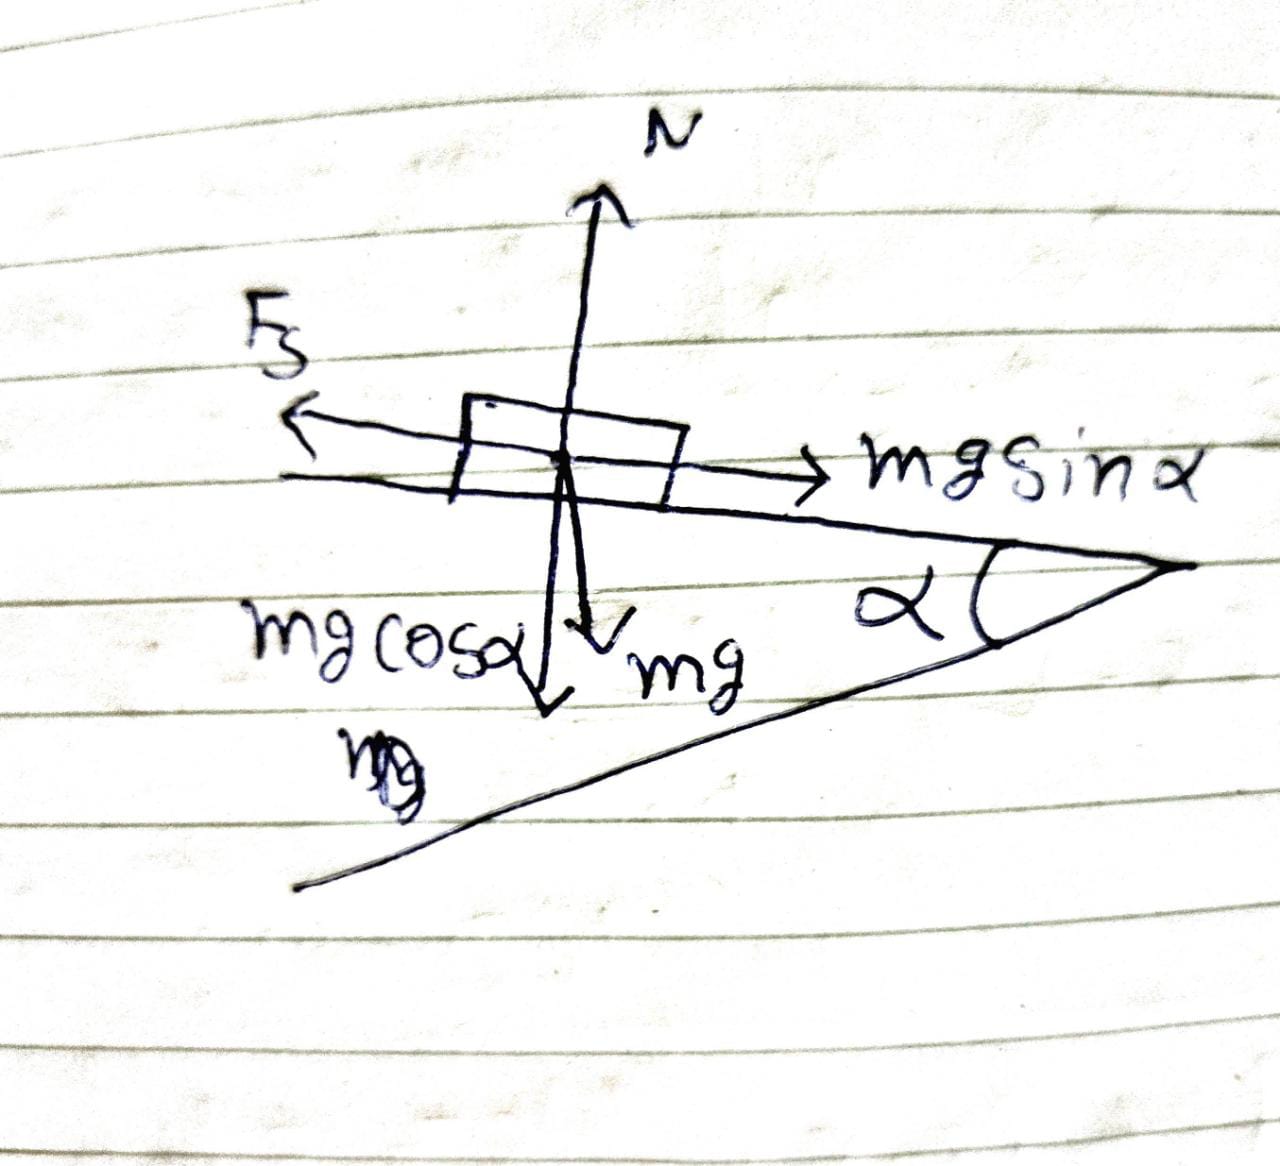 N
Fs
mg sin α
α
mg cosα
mg